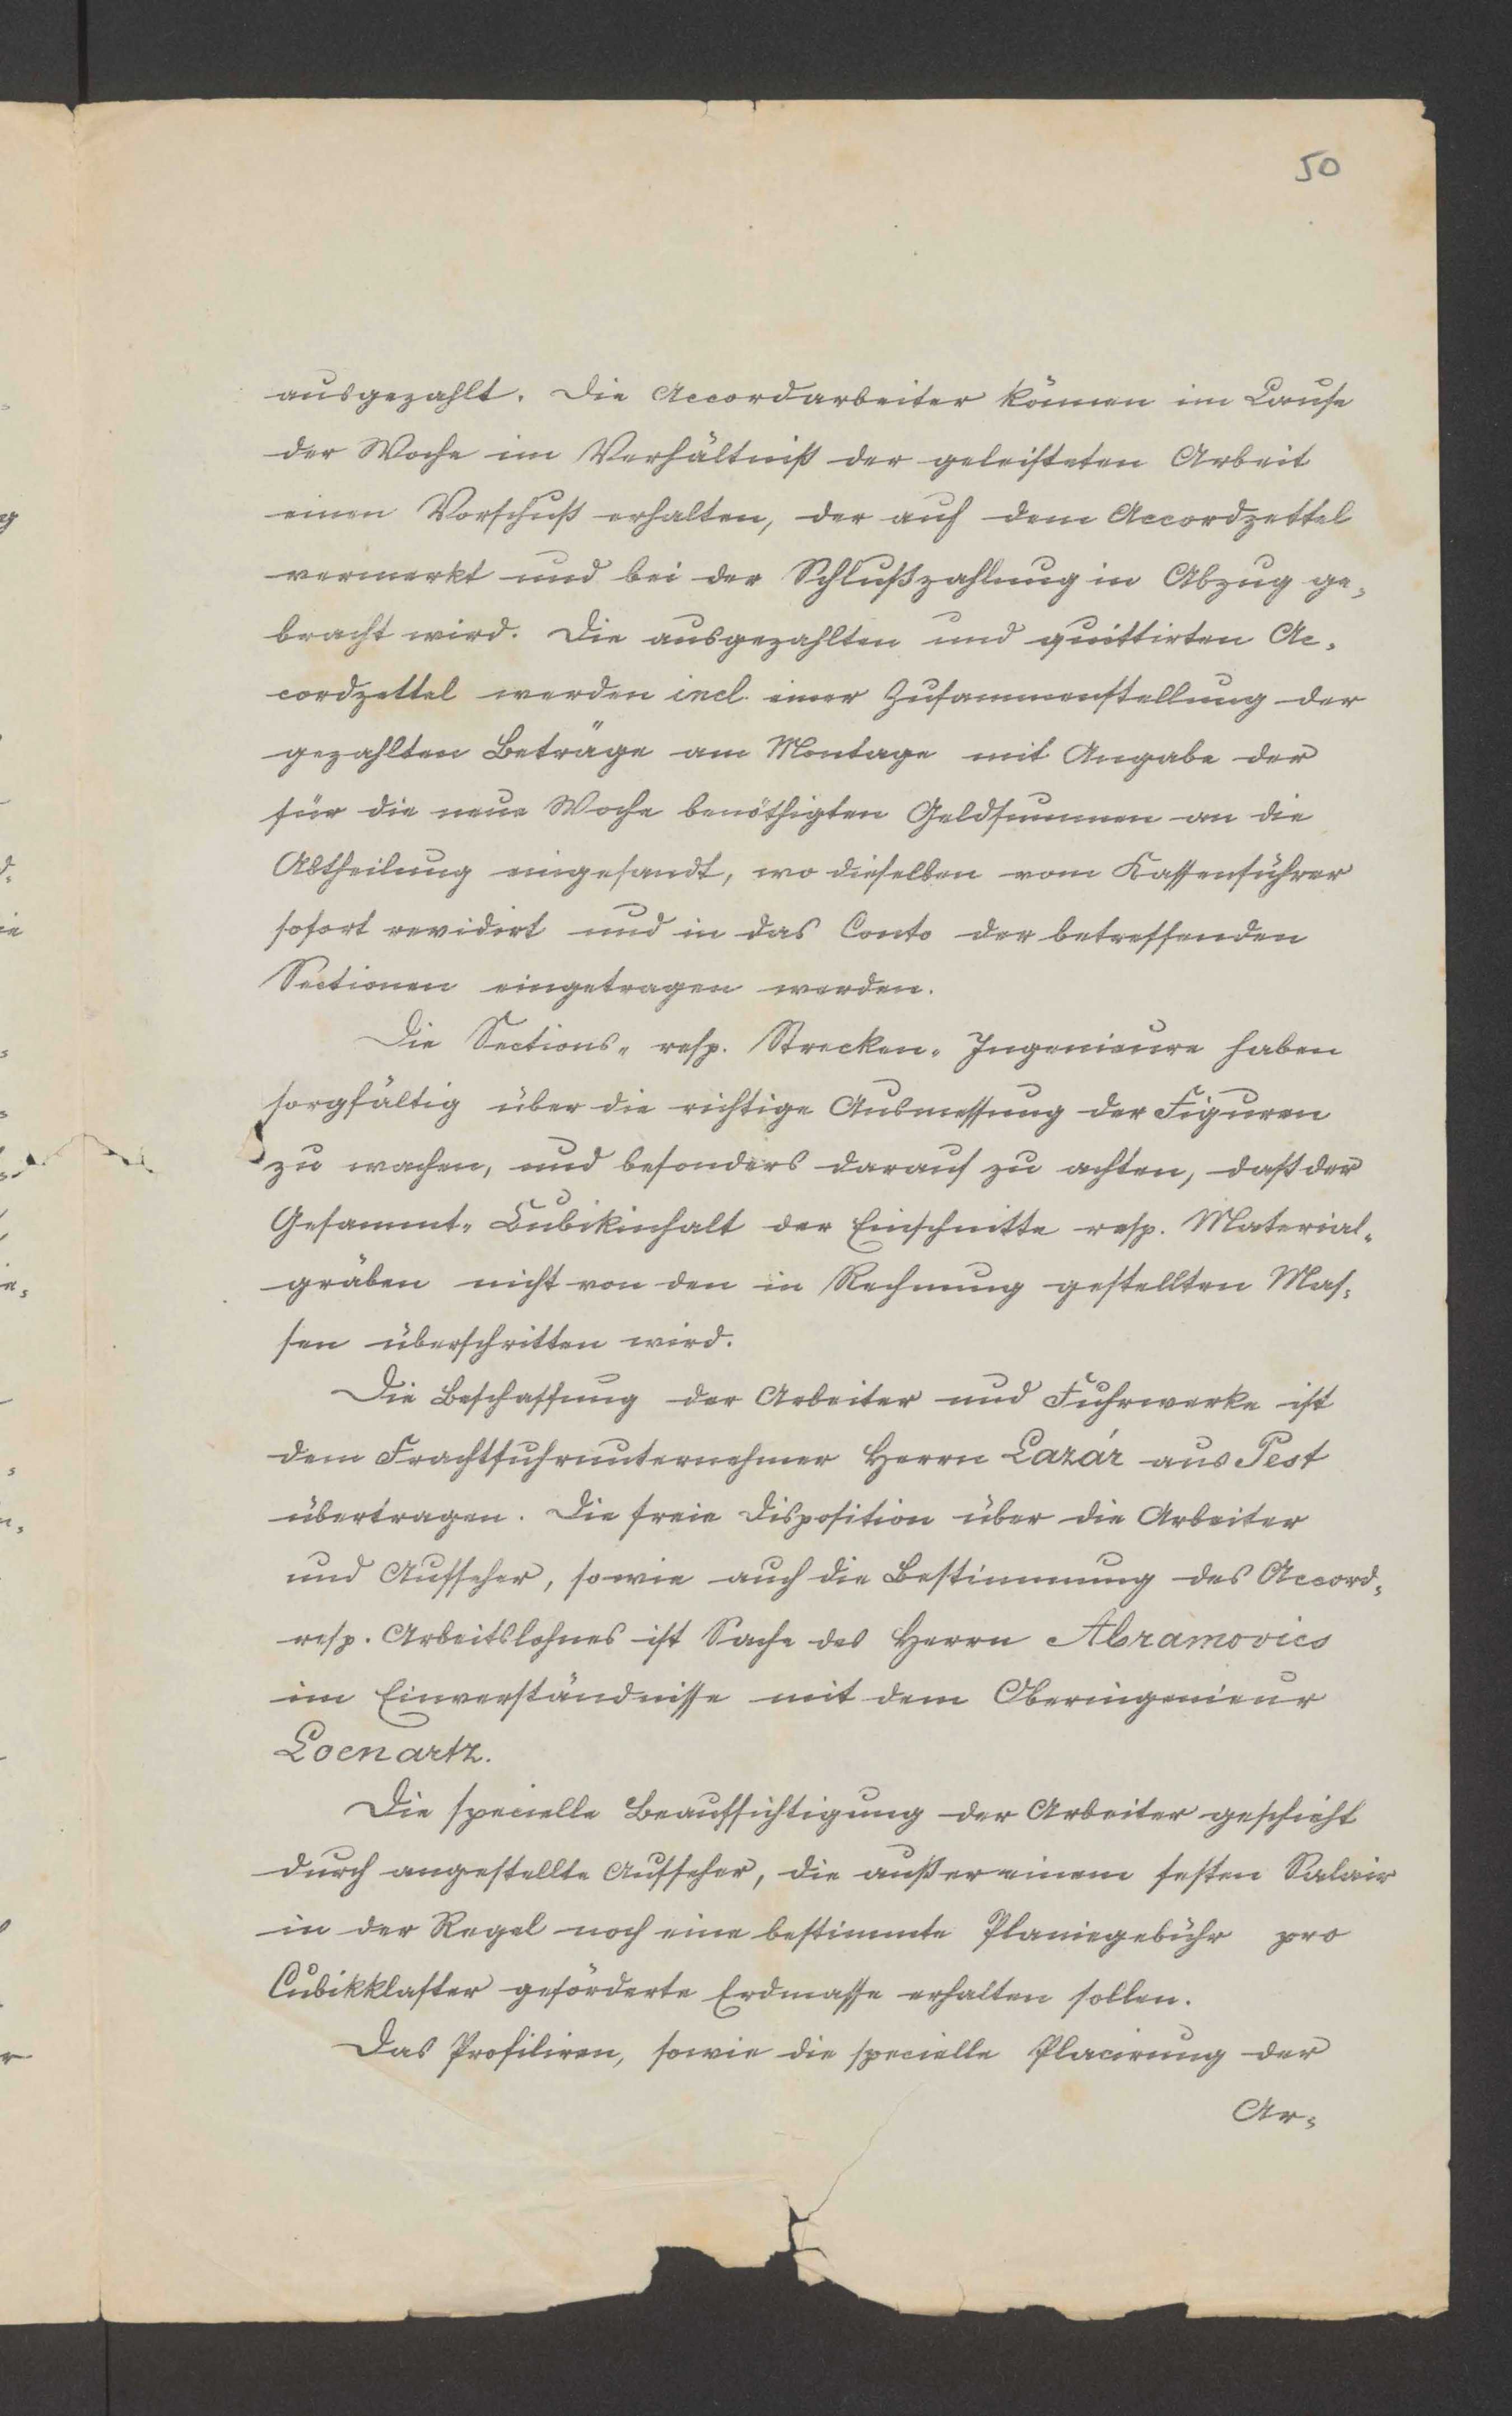 50
ausgezahlt. Die Accordarbeiter können im Laufe
der Woche im Verhältniß der geleisteten Arbeit
einen Vorschuß erhalten, der auf dem Accordzettel
vermerkt und bei der Schlußzahlung in Abzug ge-
bracht wird. Die ausgezahlten und quittirten Ac-
cordzettel werden incl. einer Zusammenstellung der
gezahlten Beträge am Montage mit Angabe der
für die neue Woche benöthigten Geldsummen an die
Abtheilung eingesandt, wo dieselben vom Kassenführer
sofort revidirt und in das Conto der betreffenden
Sectionen eingetragen werden.
Die Sections- resp. Strecken-Ingenieure haben
sorgfältig über die richtige Ausmessung der Figuren
zu wachen, und besonders darauf zu achten, daß der
Gesammt-Cubikinhalt der Einschnitte resp. Material-
gräben nicht von den in Rechnung gestellten Mas-
sen überschritten wird.
Die Beschaffung der Arbeiter und Fuhrwerke ist
dem Frachtfuhrunternehmer Herrn Lazár aus Pest
übertragen. Die freie Disposition über die Arbeiter
und Aufseher, sowie auch die Bestimmung des Accord-
resp. Arbeitslohnes ist Sache des Herrn Abramovics
im Einverständnisse mit dem Oberingenieur
Loenartz.
Die specielle Beaufsichtigung der Arbeiter geschieht
durch angestellte Aufseher, die außer einem festen Salair
in der Regel noch eine bestimmte Planiegebühr pro
Cubikklafter geförderte Erdmasse erhalten sollen.
Das Profiliren, sowie die specielle Placirung der
Ar-